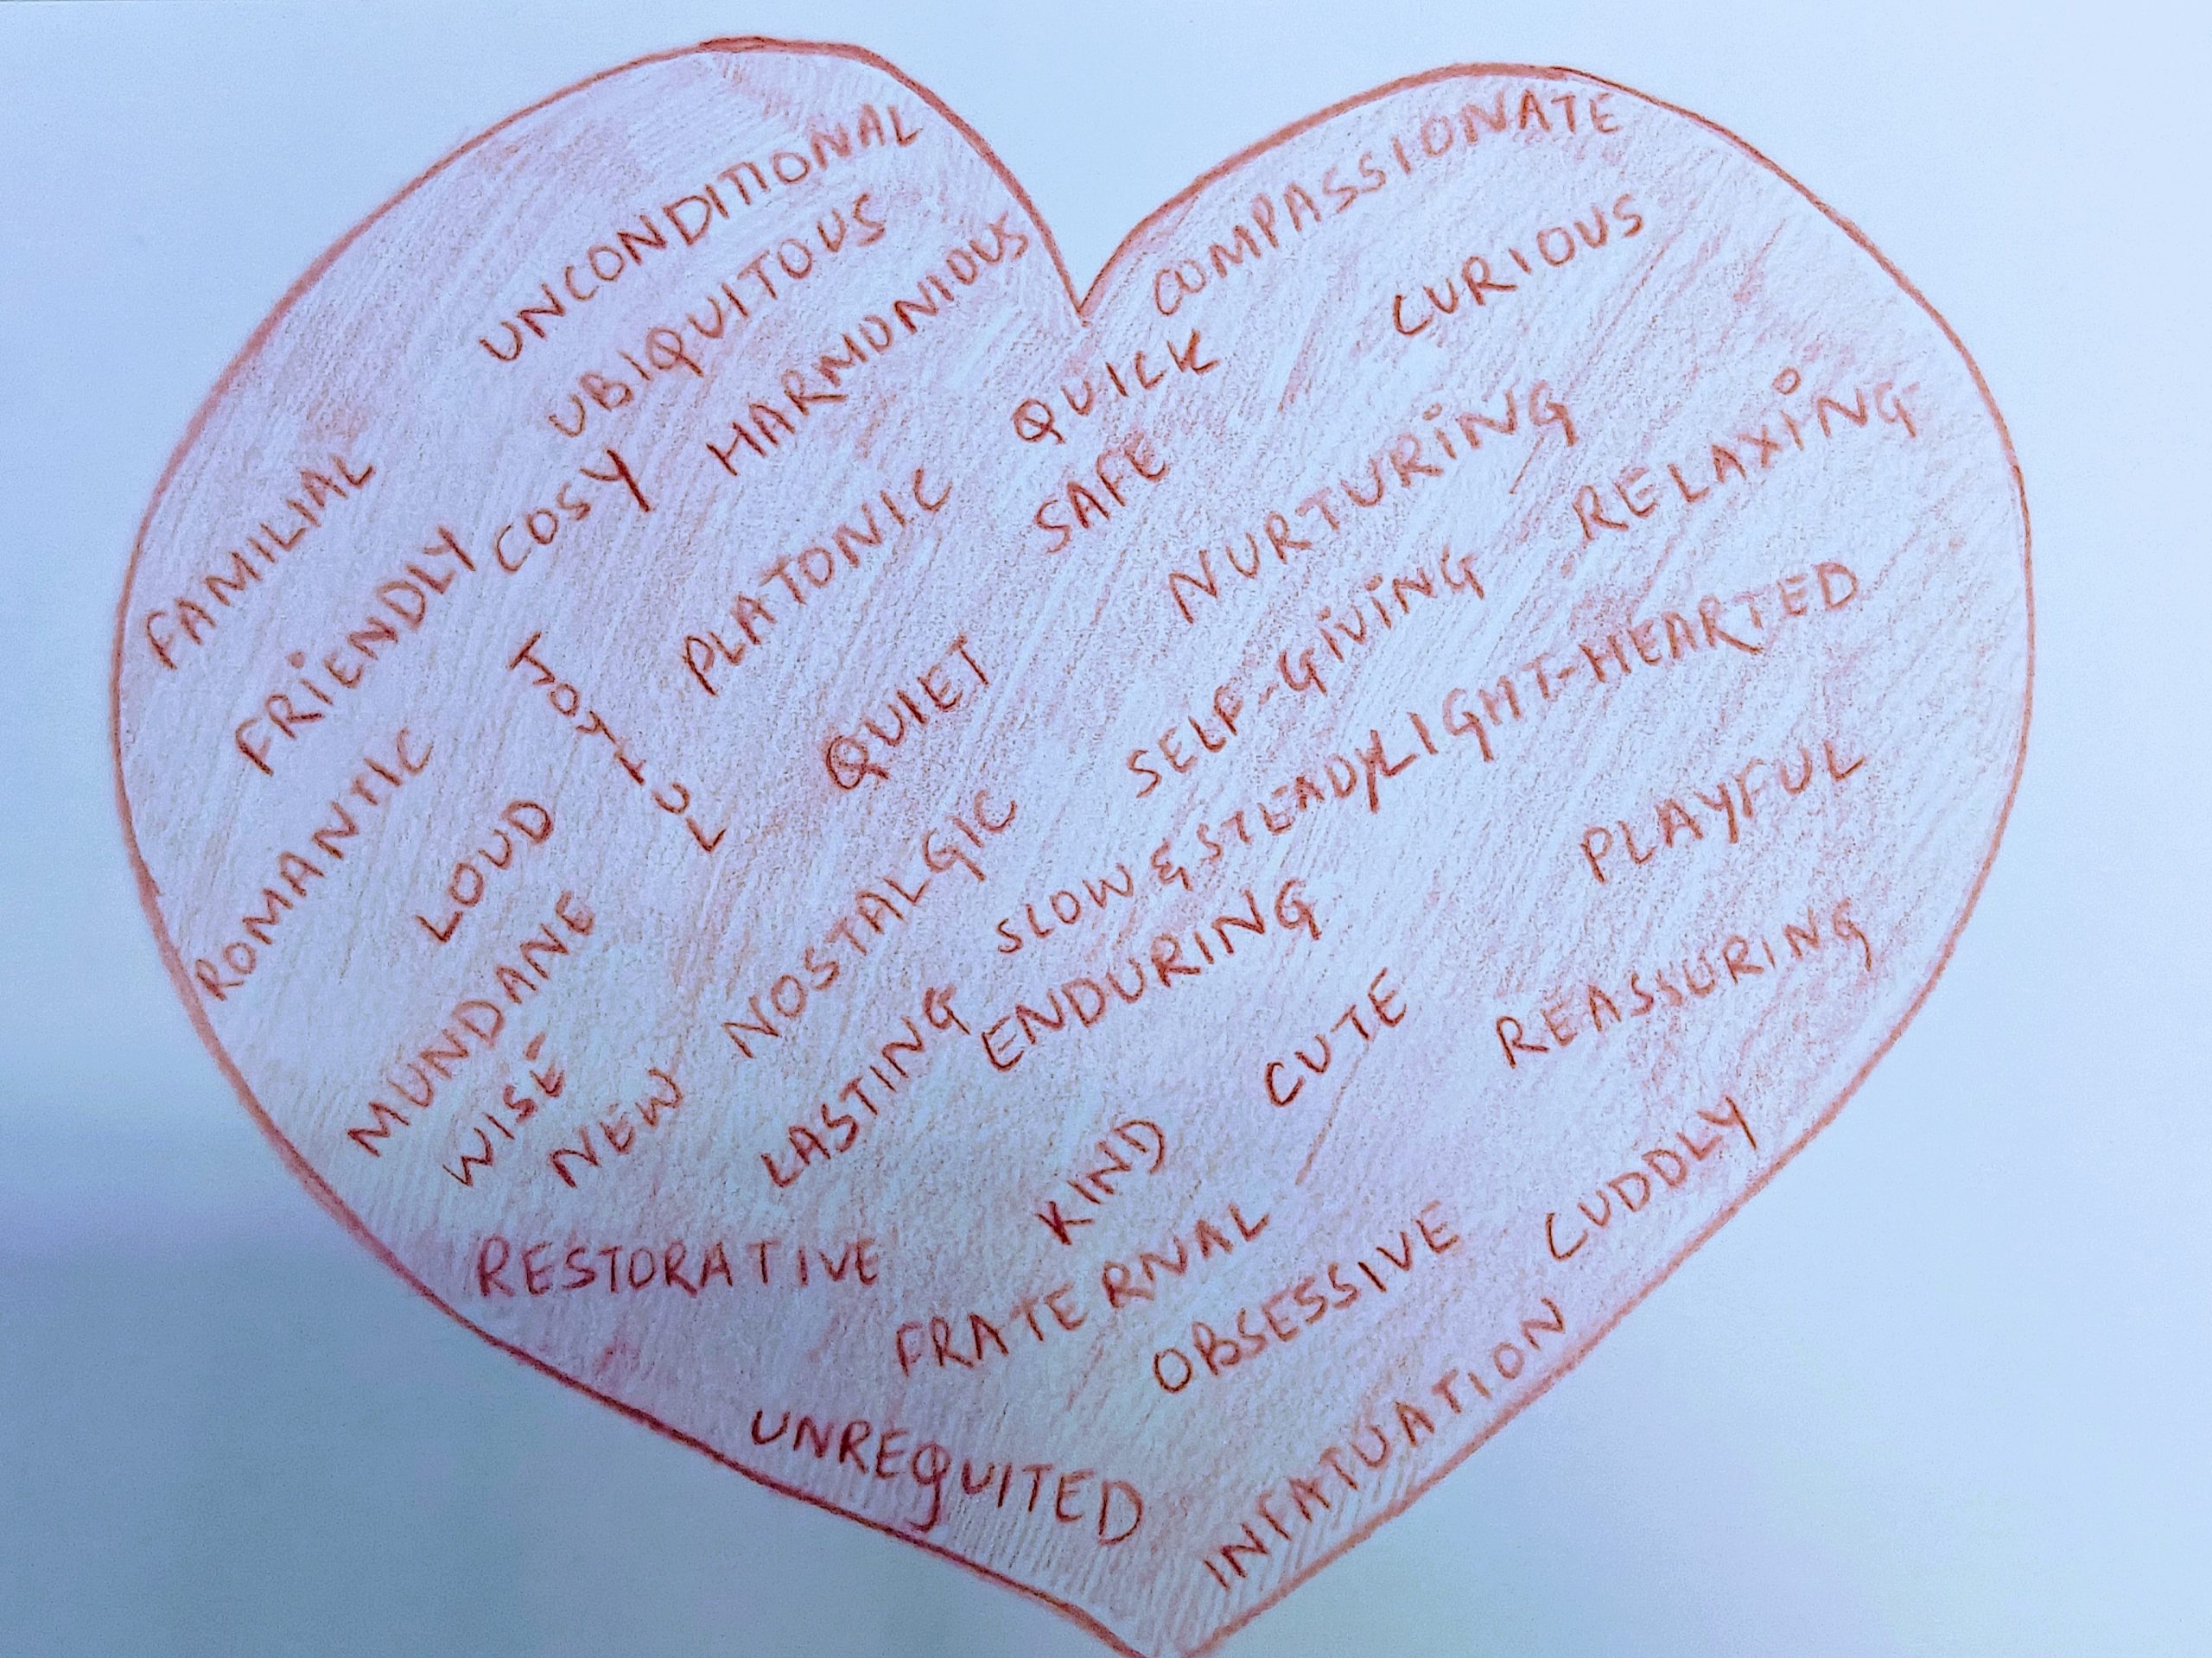 UNCONDITIONAL
UBIQUITOUS
HARMONIOUS
COMPASSIONATE
CURIOUS
QUICK
SAFE
FAMILIAL
FRIENDLY
COSY
ROMANTIC
JOYFUL
PLATONIC
NURTURING
RELAXING
LOUD
QUIET
SELF-GIVING
LIGHT-HEARTED
MUNDANE
WISE
NEW
NOSTALGIC
SLOW & STEADY
PLAYFUL
LASTING
ENDURING
REASSURING
CUTE
KIND
CUDDLY
RESTORATIVE
FRATERNAL
OBSESSIVE
UNREQUITED
INFATUATION